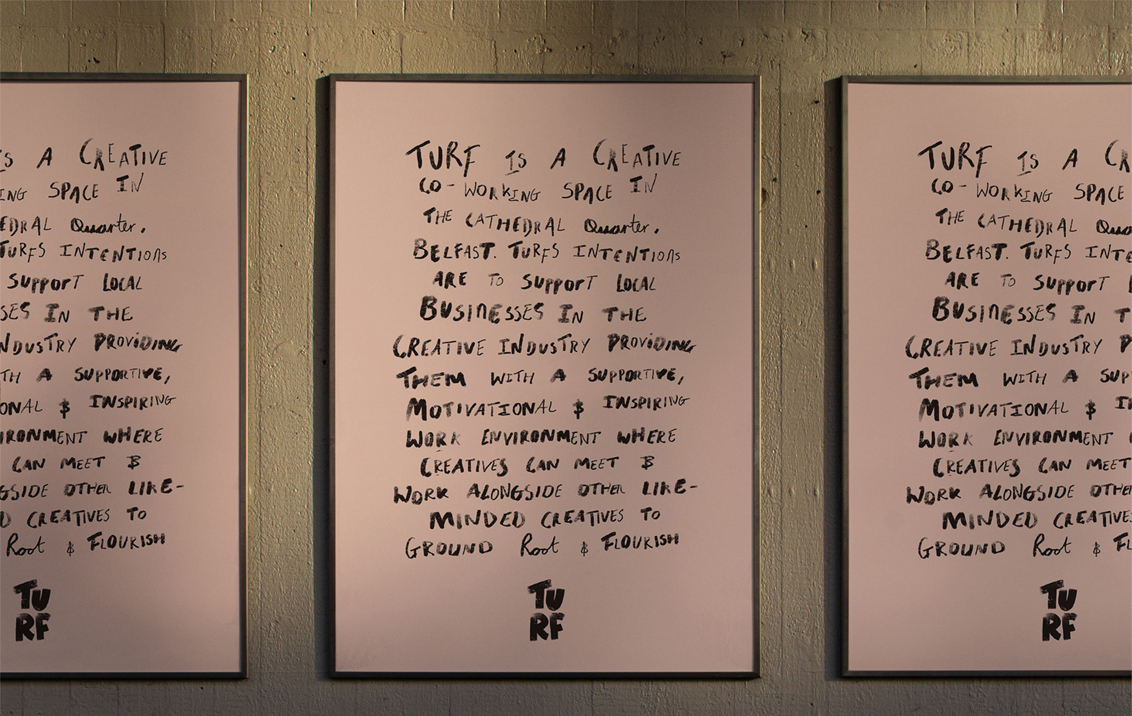 IS A CREATIVE
ING SPACE IN
EDRAL Quarter.
TURFS INTENTIONS
SUPPORT LOCAL
SES IN THE
NDUSTRY PROVIDING
TH A SUPPORTIVE,
ONAL & INSPIRING
IRONMENT WHERE
CAN MEET &
GSIDE OTHER LIKE-
D CREATIVES TO
Root & FLOURISH
TU
RF
TURF IS A CREATIVE
CO-WORKING SPACE IN
THE CATHEDRAL Quarter.
BELFAST. TURFS INTENTIONS
ARE TO SUPPORT LOCAL
BUSINESSES IN THE
CREATIVE INDUSTRY PROVIDING
THEM WITH A SUPPORTIVE,
MOTIVATIONAL & INSPIRING
WORK ENVIRONMENT WHERE
CREATIVES CAN MEET &
WORK ALONGSIDE OTHER LIKE-
MINDED CREATIVES TO
GROUND Root & FLOURISH
TU
RF
TURF IS A CR
CO-WORKING SPACE
THE CATHEDRAL Qua
BELFAST. TURFS INTE
ARE TO SUPPORT L
BUSINESSES IN T
CREATIVE INDUSTRY P
THEM WITH A SUP
MOTIVATIONAL & IN
WORK ENVIRONMENT
CREATIVES CAN MEET
WORK ALONGSIDE OTHE
MINDED CREATIVE
GROUND Root & FL
TU
RF